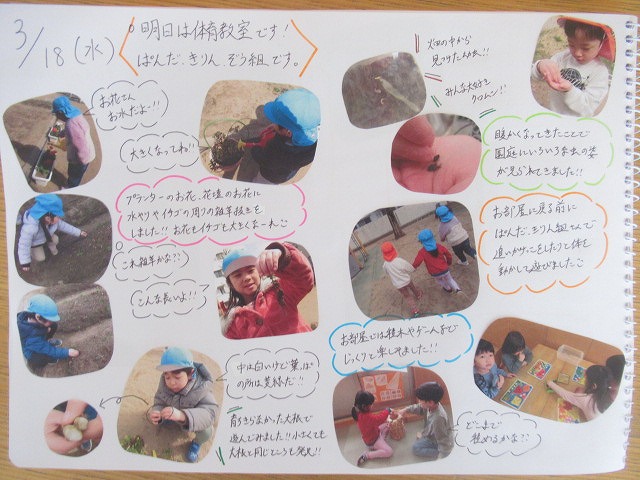 3/18(水)
明日は体育教室です!
ぱんだ、きりん、ぞう組です。
お花さん
お水だよー!!
大きくなってね!!
プランターのお花、花壇のお花に
水やりやイチゴの周りの雑草抜きを
しました!!お花もイチゴも大きくなーれ
これ雑草かな??
こんな長いよ!!
中は白いけど葉っぱ
の所は黄緑だ!!
育ちきらなかった大根で
遊んでみました!!小さくても
大根と同じところも発見!!
畑の中から
見つけた幼虫!!
みんな大好き
ダンゴムシ!!
暖かくなってきたことで
園庭にいろいろな虫の姿
が見られてきました!!
お部屋に戻る前に
ぱんだ、きりん組さんで
追いかけっこをしたりて体を
動かして遊びました
お部屋では積木やゲームなどで
じっくりて楽しみました!!
どこまで
積めるかな??